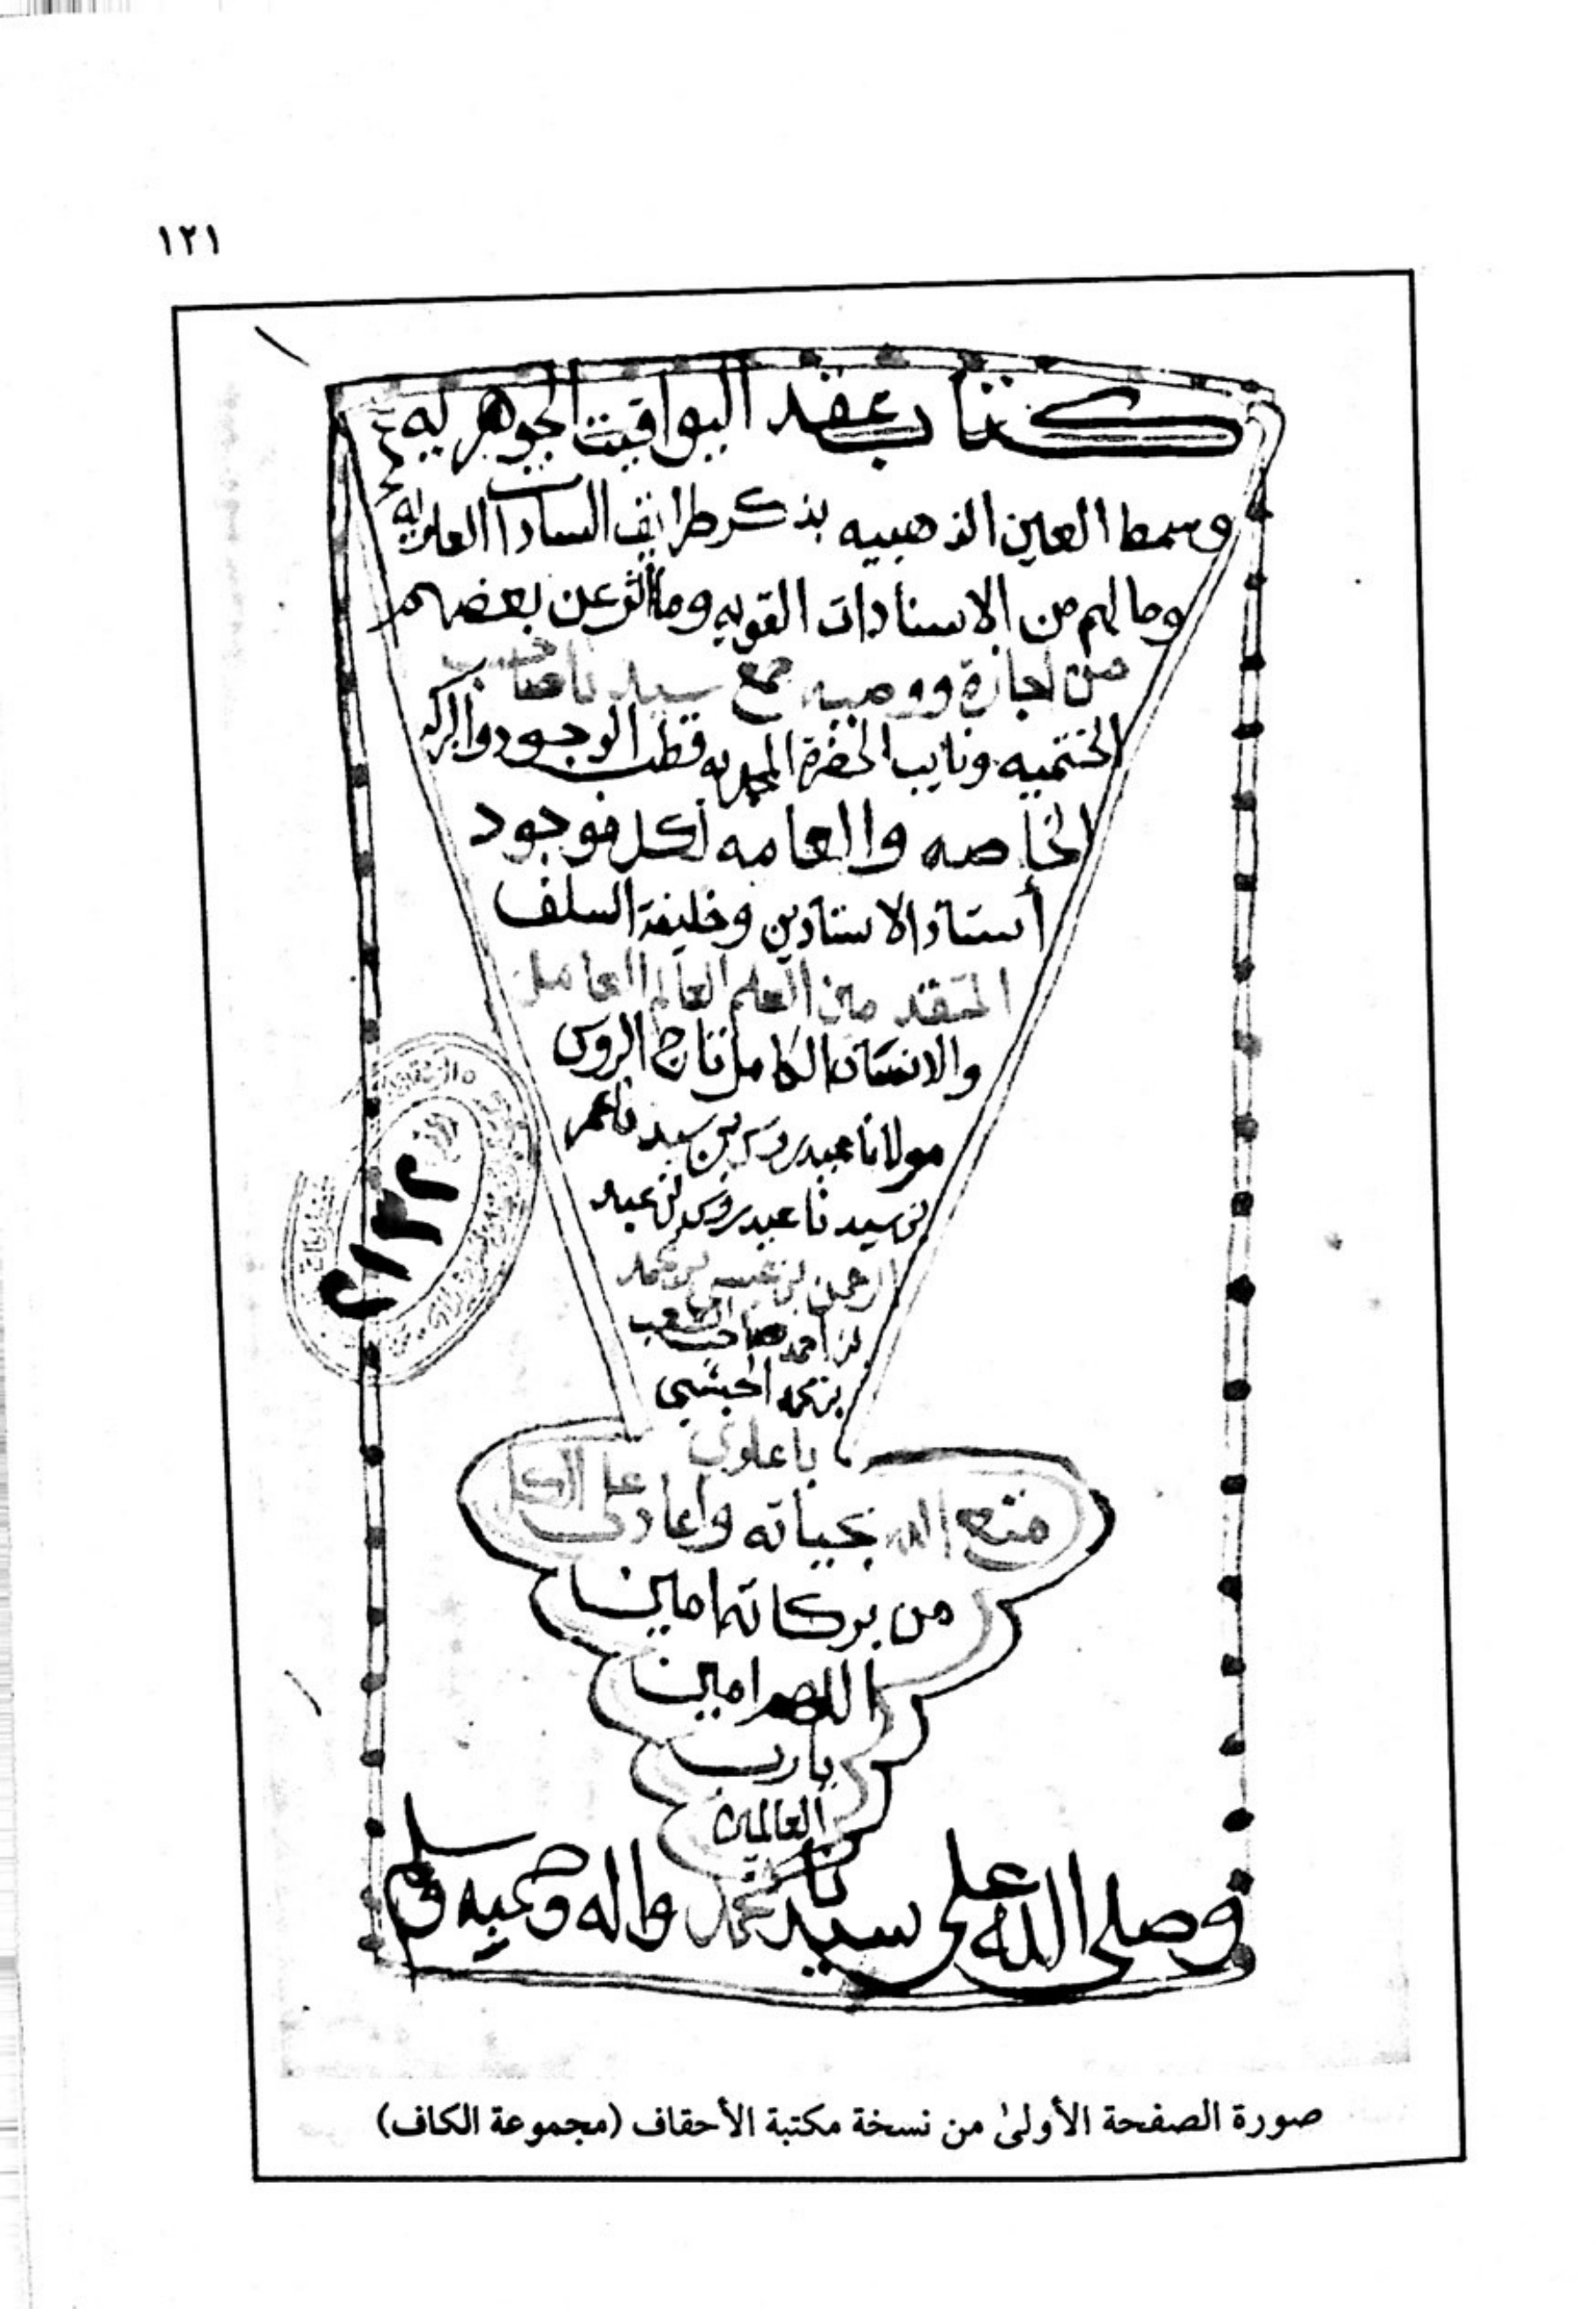 ١٢١
كتاب عقد اليواقيت الجوهريه
وسمط العين الذهبيه بذكر طرايق السادات العلويه
وما لهم من الاسنادات القويه وما أثر عن بعضهم
من اجازة ووصيه جمع سيدنا صاحب
الختميه ونايب الحضرة المحمديه قطب الوجود والبركه
الخاصه والعامه لكل موجود
أستاذ الاستاذين وخليفة السلف
المتقدمين العلم العالم العامل
والانسان الكامل تاج الروس
مولانا عيدروس بن سيدنا عمر
بن سيدنا عيدروس بن عبد
الرحمن بن عيسى بن محمد
بن احمد صاحب الشعب
بن محمد الحبشي
باعلوي
متع الله بحياته واعاد على الكل
من بركاته امين
اللهم امين
يارب
العالمين
وصلى الله على سيدنا محمد واله وصحبه وسلم
٢١٢٢
صورة الصفحة الأولىٰ من نسخة مكتبة الأحقاف (مجموعة الكاف)